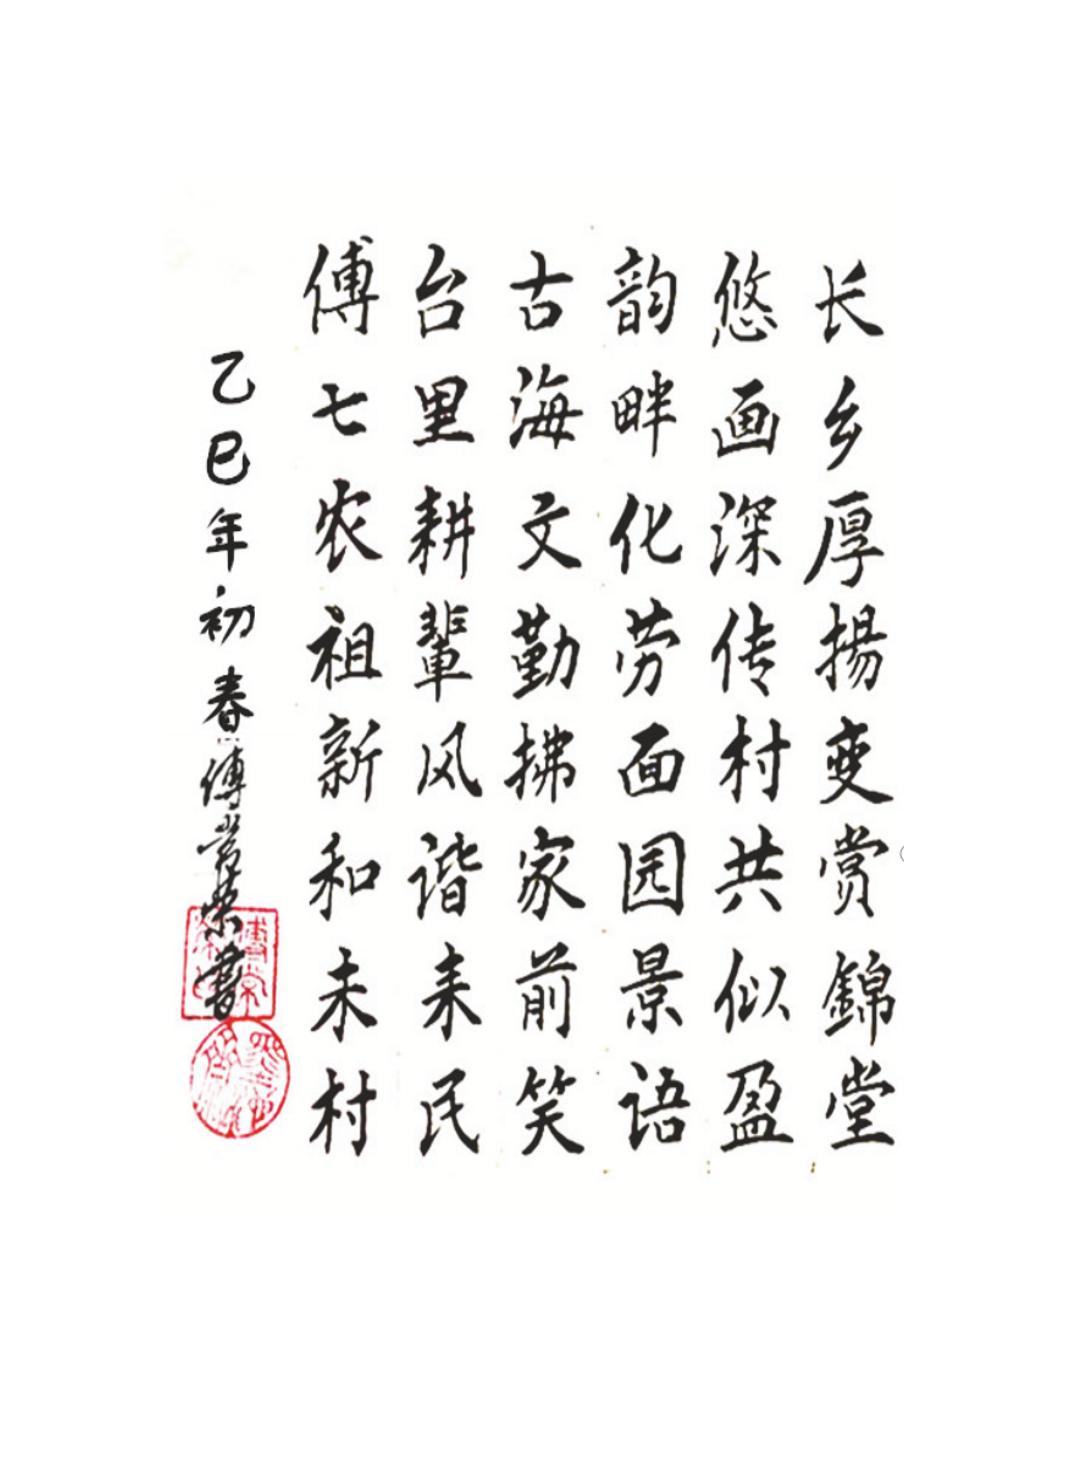 傅台古韵悠长
七里海畔画乡
农耕文化深厚
祖輩勤劳传揚
新风拂面村变
和谐家园共赏
未来前景似錦
村民笑语盈堂
乙巳年初春傅荣書